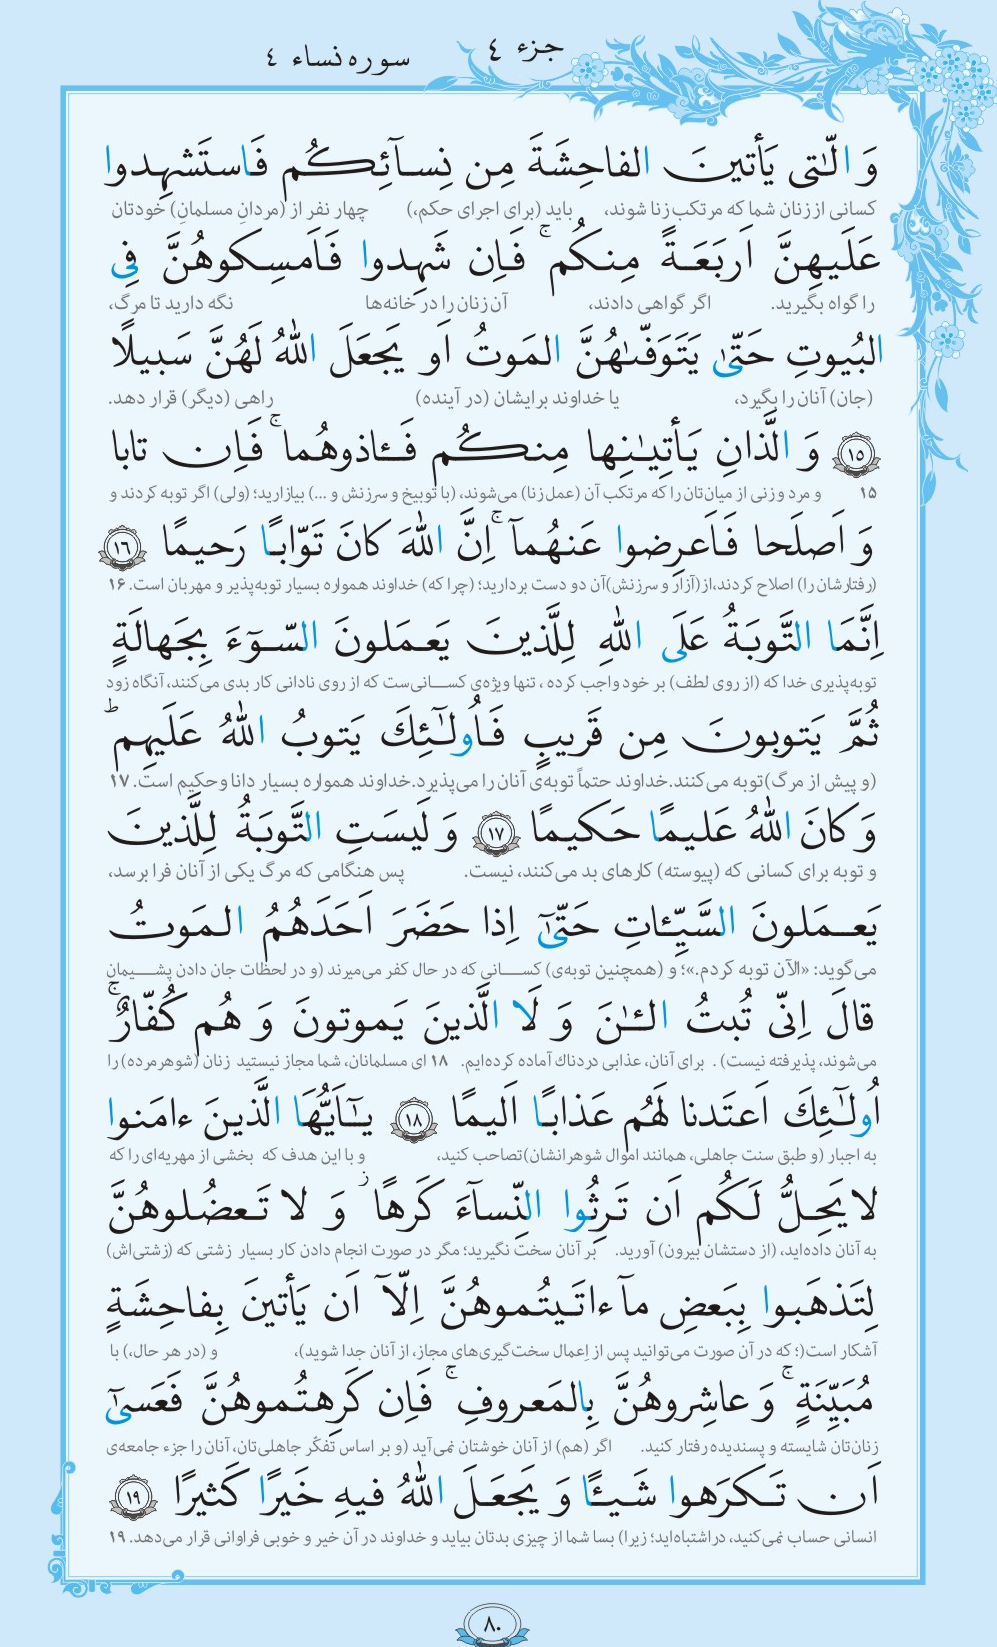 جزء ٤
سوره نساء ٤
وَ الّٰتی یَأتینَ الفاحِشَةَ مِن نِسآئِکُم فَاستَشهِدوا
کسانی از زنان شما که مرتکب زنا شوند، باید (برای اجرای حکم،) چهار نفر از (مردانِ مسلمانِ) خودتان
عَلَیهِنَّ اَربَعَةً مِنکُم ۚ فَاِن شَهِدوا فَاَمسِکوهُنَّ فِی
را گواه بگیرید. اگر گواهی دادند، آن زنان را در خانه‌ها نگه دارید تا مرگ،
البُیوتِ حَتّیٰ یَتَوَفّىٰهُنَّ المَوتُ اَو یَجعَلَ اللهُ لَهُنَّ سَبیلًا
(جان) آنان را بگیرد، یا خداوند برایشان (در آینده) راهی (دیگر) قرار دهد.
﴿١٥﴾ وَ الَّذانِ یَأتِیٰنِها مِنکُم فَـٔاذوهُما ۚ فَاِن تابا
۱۵ و مرد و زنی از میان‌تان را که مرتکب آن (عمل زنا) می‌شوند، (با توبیخ و سرزنش و ...) بیازارید؛ (ولی) اگر توبه کردند و
وَ اَصلَحا فَاَعرِضوا عَنهُمآ ۚ اِنَّ اللهَ کانَ تَوّابًا رَحیمًا ﴿١٦﴾
(رفتارشان را) اصلاح کردند، از (آزار و سرزنش) آن دو دست بردارید؛ (چرا که) خداوند همواره بسیار توبه‌پذیر و مهربان است. ۱۶
اِنَّمَا التَّوبَةُ عَلَی اللهِ لِلَّذینَ یَعمَلونَ السّوٓءَ بِجَهالَةٍ
توبه‌پذیری خدا که (از روی لطف) بر خود واجب کرده، تنها ویژه‌ی کسانی‌ست که از روی نادانی کار بدی می‌کنند، آنگاه زود
ثُمَّ یَتوبونَ مِن قَریبٍ فَاُولٰٓئِكَ یَتوبُ اللهُ عَلَیهِم ؕ
(و پیش از مرگ) توبه می‌کنند. خداوند حتماً توبه‌ی آنان را می‌پذیرد. خداوند همواره بسیار دانا و حکیم است. ۱۷
وَ کانَ اللهُ عَلیمًا حَکیمًا ﴿١٧﴾ وَ لَیسَتِ التَّوبَةُ لِلَّذینَ
و توبه برای کسانی که (پیوسته) کارهای بد می‌کنند، نیست. پس هنگامی که مرگ یکی از آنان فرا برسد،
یَعمَلونَ السَّیِّـٔاتِ حَتّیٰٓ اِذا حَضَرَ اَحَدَهُمُ المَوتُ
می‌گوید: «الآن توبه کردم.»؛ و (همچنین توبه‌ی) کسانی که در حال کفر می‌میرند (و در لحظات جان دادن پشیمان
قالَ اِنّی تُبتُ الـٰٔنَ وَ لَا الَّذینَ یَموتونَ وَ هُم کُفّارٌ ۚ
می‌شوند، پذیرفته نیست). برای آنان، عذابی دردناك آماده کرده‌ایم. ۱۸ ای مسلمانان، شما مجاز نیستید زنان (شوهرمرده) را
اُولٰٓئِكَ اَعتَدنا لَهُم عَذابًا اَلیمًا ﴿١٨﴾ یٰٓاَیُّهَا الَّذینَ ءامَنوا
به اجبار (و طبق سنت جاهلی، همانند اموال شوهرانشان) تصاحب کنید، و با این هدف که بخشی از مهریه‌ای را که
لا یَحِلُّ لَکُم اَن تَرِثُوا النِّسآءَ کَرهًا ۖ وَ لا تَعضُلوهُنَّ
به آنان داده‌اید، (از دستشان بیرون) آورید. بر آنان سخت نگیرید؛ مگر در صورت انجام دادن کار بسیار زشتی که (زشتی‌اش)
لِتَذهَبوا بِبَعضِ مآ ءاتَیتُموهُنَّ اِلّآ اَن یَأتینَ بِفاحِشَةٍ
آشکار است (؛ که در آن صورت می‌توانید پس از اِعمال سخت‌گیری‌های مجاز، از آنان جدا شوید)، و (در هر حال،) با
مُبَیِّنَةٍ ۚ وَ عاشِروهُنَّ بِالمَعروفِ ۚ فَاِن کَرِهتُموهُنَّ فَعَسیٰٓ
زنان‌تان شایسته و پسندیده رفتار کنید. اگر (هم) از آنان خوشتان نمی‌آید (و بر اساس تفکّر جاهلی‌تان، آنان را جزء جامعه‌ی
اَن تَکرَهوا شَیـًٔا وَ یَجعَلَ اللهُ فیهِ خَیرًا کَثیرًا ﴿١٩﴾
انسانی حساب نمی‌کنید، در اشتباه‌اید؛ زیرا) بسا شما از چیزی بدتان بیاید و خداوند در آن خیر و خوبی فراوانی قرار می‌دهد. ۱۹
۸۰